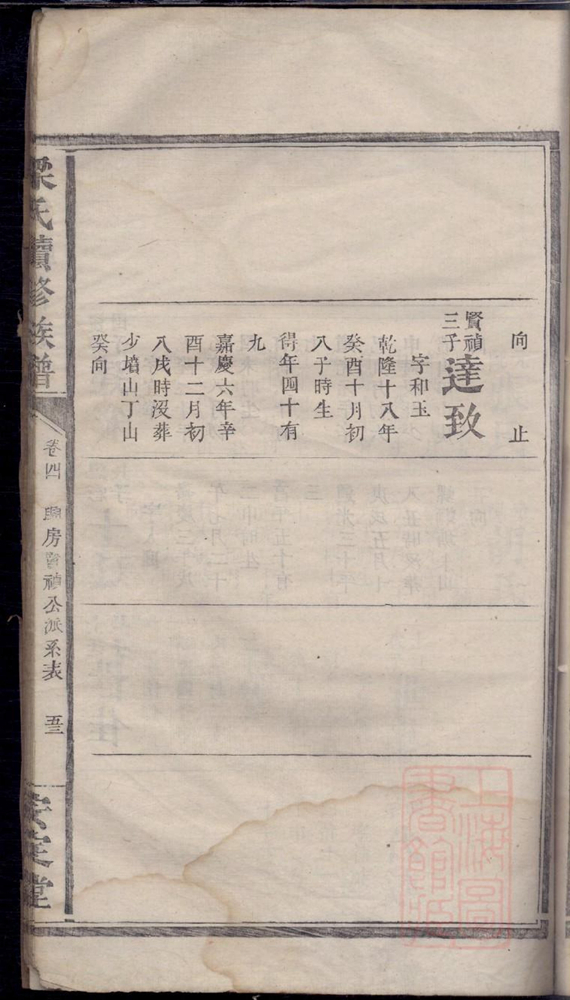 向
止
賢禎
三子
達致
字和玉
乾隆十八年
癸酉十月初
八子時生
得年四十有
九
嘉慶六年辛
酉十二月初
八戌時沒葬
少塘山丁山
癸向
梁氏續修族譜
卷四
房賢禎公派系表
五三
安定堂
上海圖書館藏